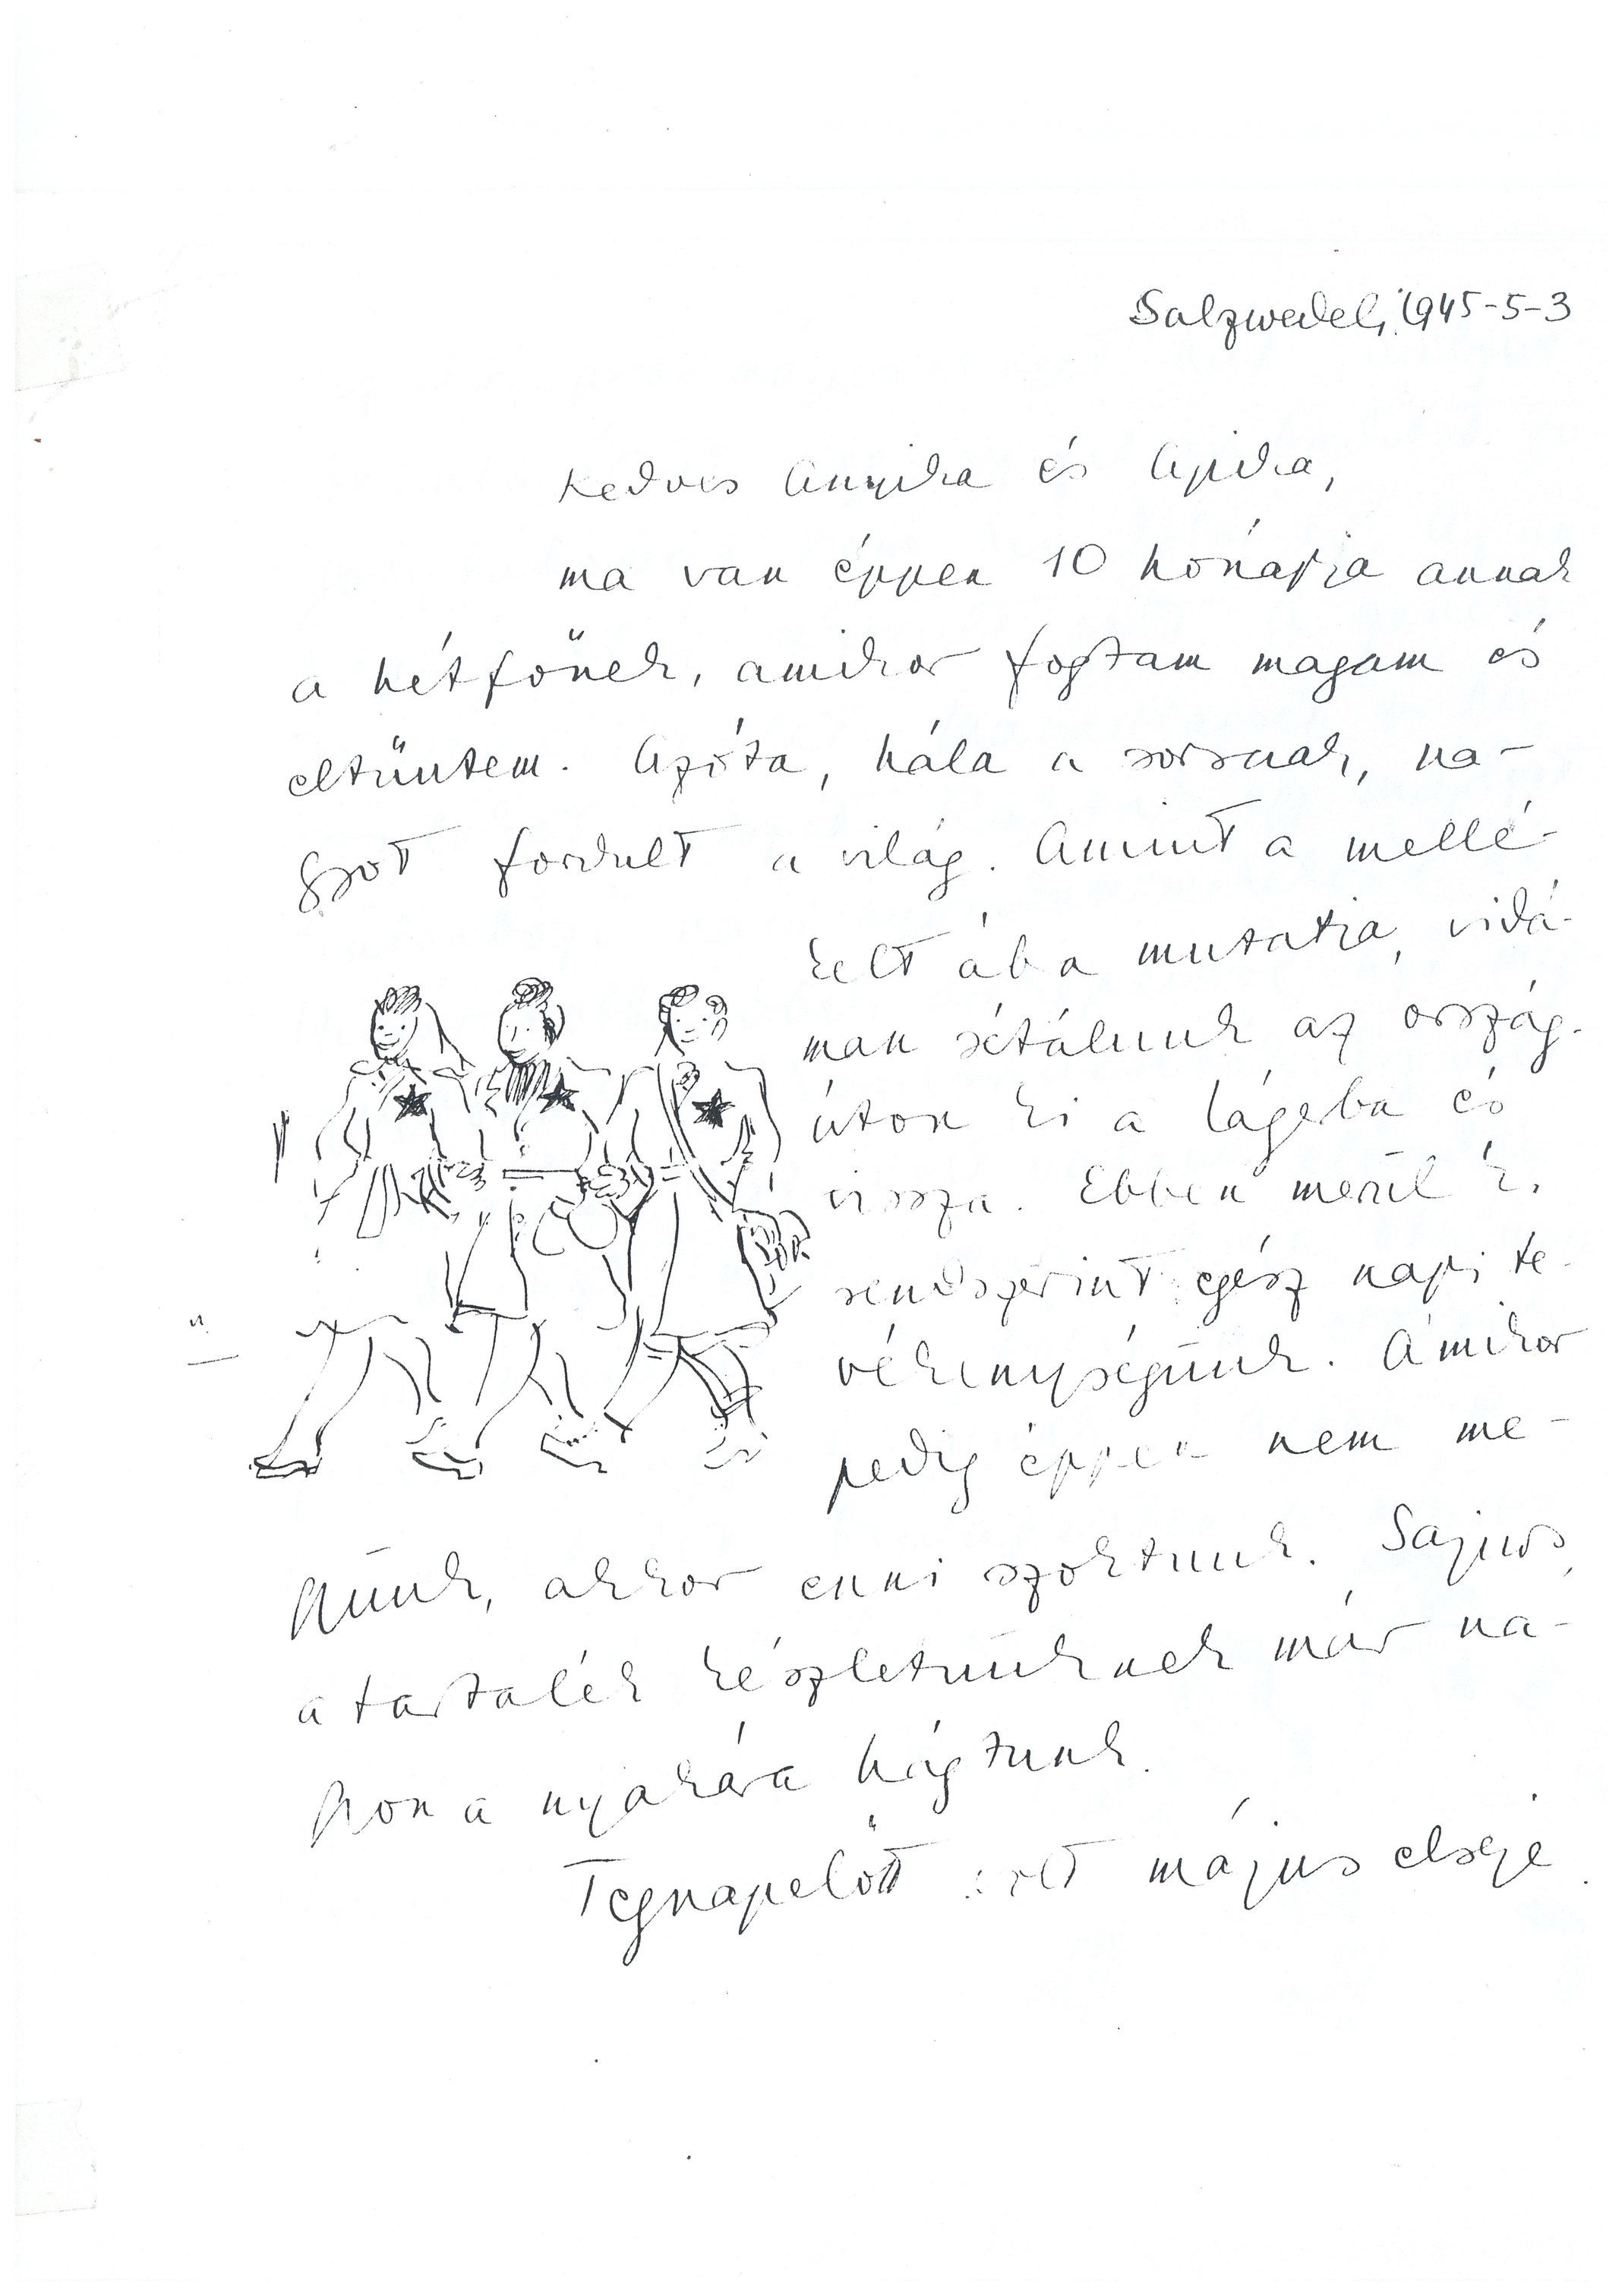 Salzwedel, 1945-5-3
Kedves Anyika és Apika,
ma van éppen 10 hónapja annak
a hétfőnek, amikor fogtam magam és
eltűntem. Azóta, hála a sorsnak, na-
gyot fordult a világ. Amint a mellé-
kelt ába mutatja, vidá-
man sétálunk az ország-
úton ki a lágerba és
vissza. Ebben merül ki
rendszerint egész napi te-
vékenységünk. Amikor
pedig éppen nem me-
gyünk, akkor enni szoktunk. Sajnos,
a tartalék készletünknek már na-
gyon a nyakára hágtunk.
Tegnapelőtt volt május elseje.